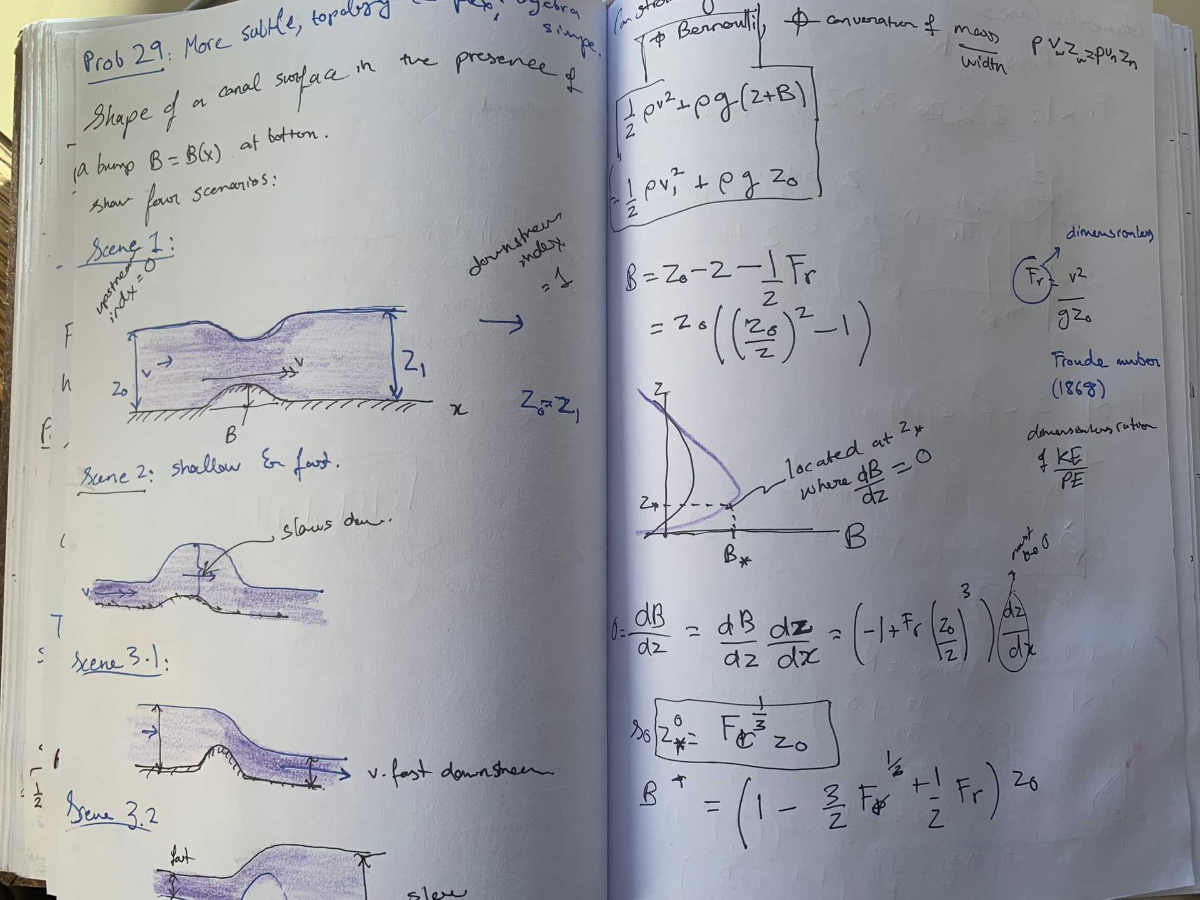 Prob 29: More subtle, topology algebra
simpe.
Shape of a canal surface in the presence of
a bump B = B(x) at bottom.
show four scenarios:
Scene 1:
upstream
indx = 0
downstream
index
= 1
Z₀
v →
v
Z₁
x
B
Z₀ = Z₁
Scene 2: shallow & fast.
slows down.
v
Scene 3.1:
v. fast downstream
Scene 3.2
fast
slow
Bernoulli, converation of mass/width ρ V_w Z_w = ρ v_n Z_n
1/2 ρv² + ρg(z+B)
= 1/2 ρv₁² + ρg z₀
B = Z₀ - Z - 1/2 Fr
= Z₀((Z₀/Z)² - 1)
dimensionless
Fr = v²/gZ₀
Froude number
(1868)
dimensionless ration
of KE/PE
Z
Z*
B*
B
located at Z*
where dB/dz = 0
must
be 0
0 = dB/dz = dB/dz dz/dx = (-1 + Fr(Z₀/Z)³) dz/dx
so Z* = Fr^1/3 Z₀
B* = (1 - 3/2 Fr^1/2 + 1/2 Fr) Z₀